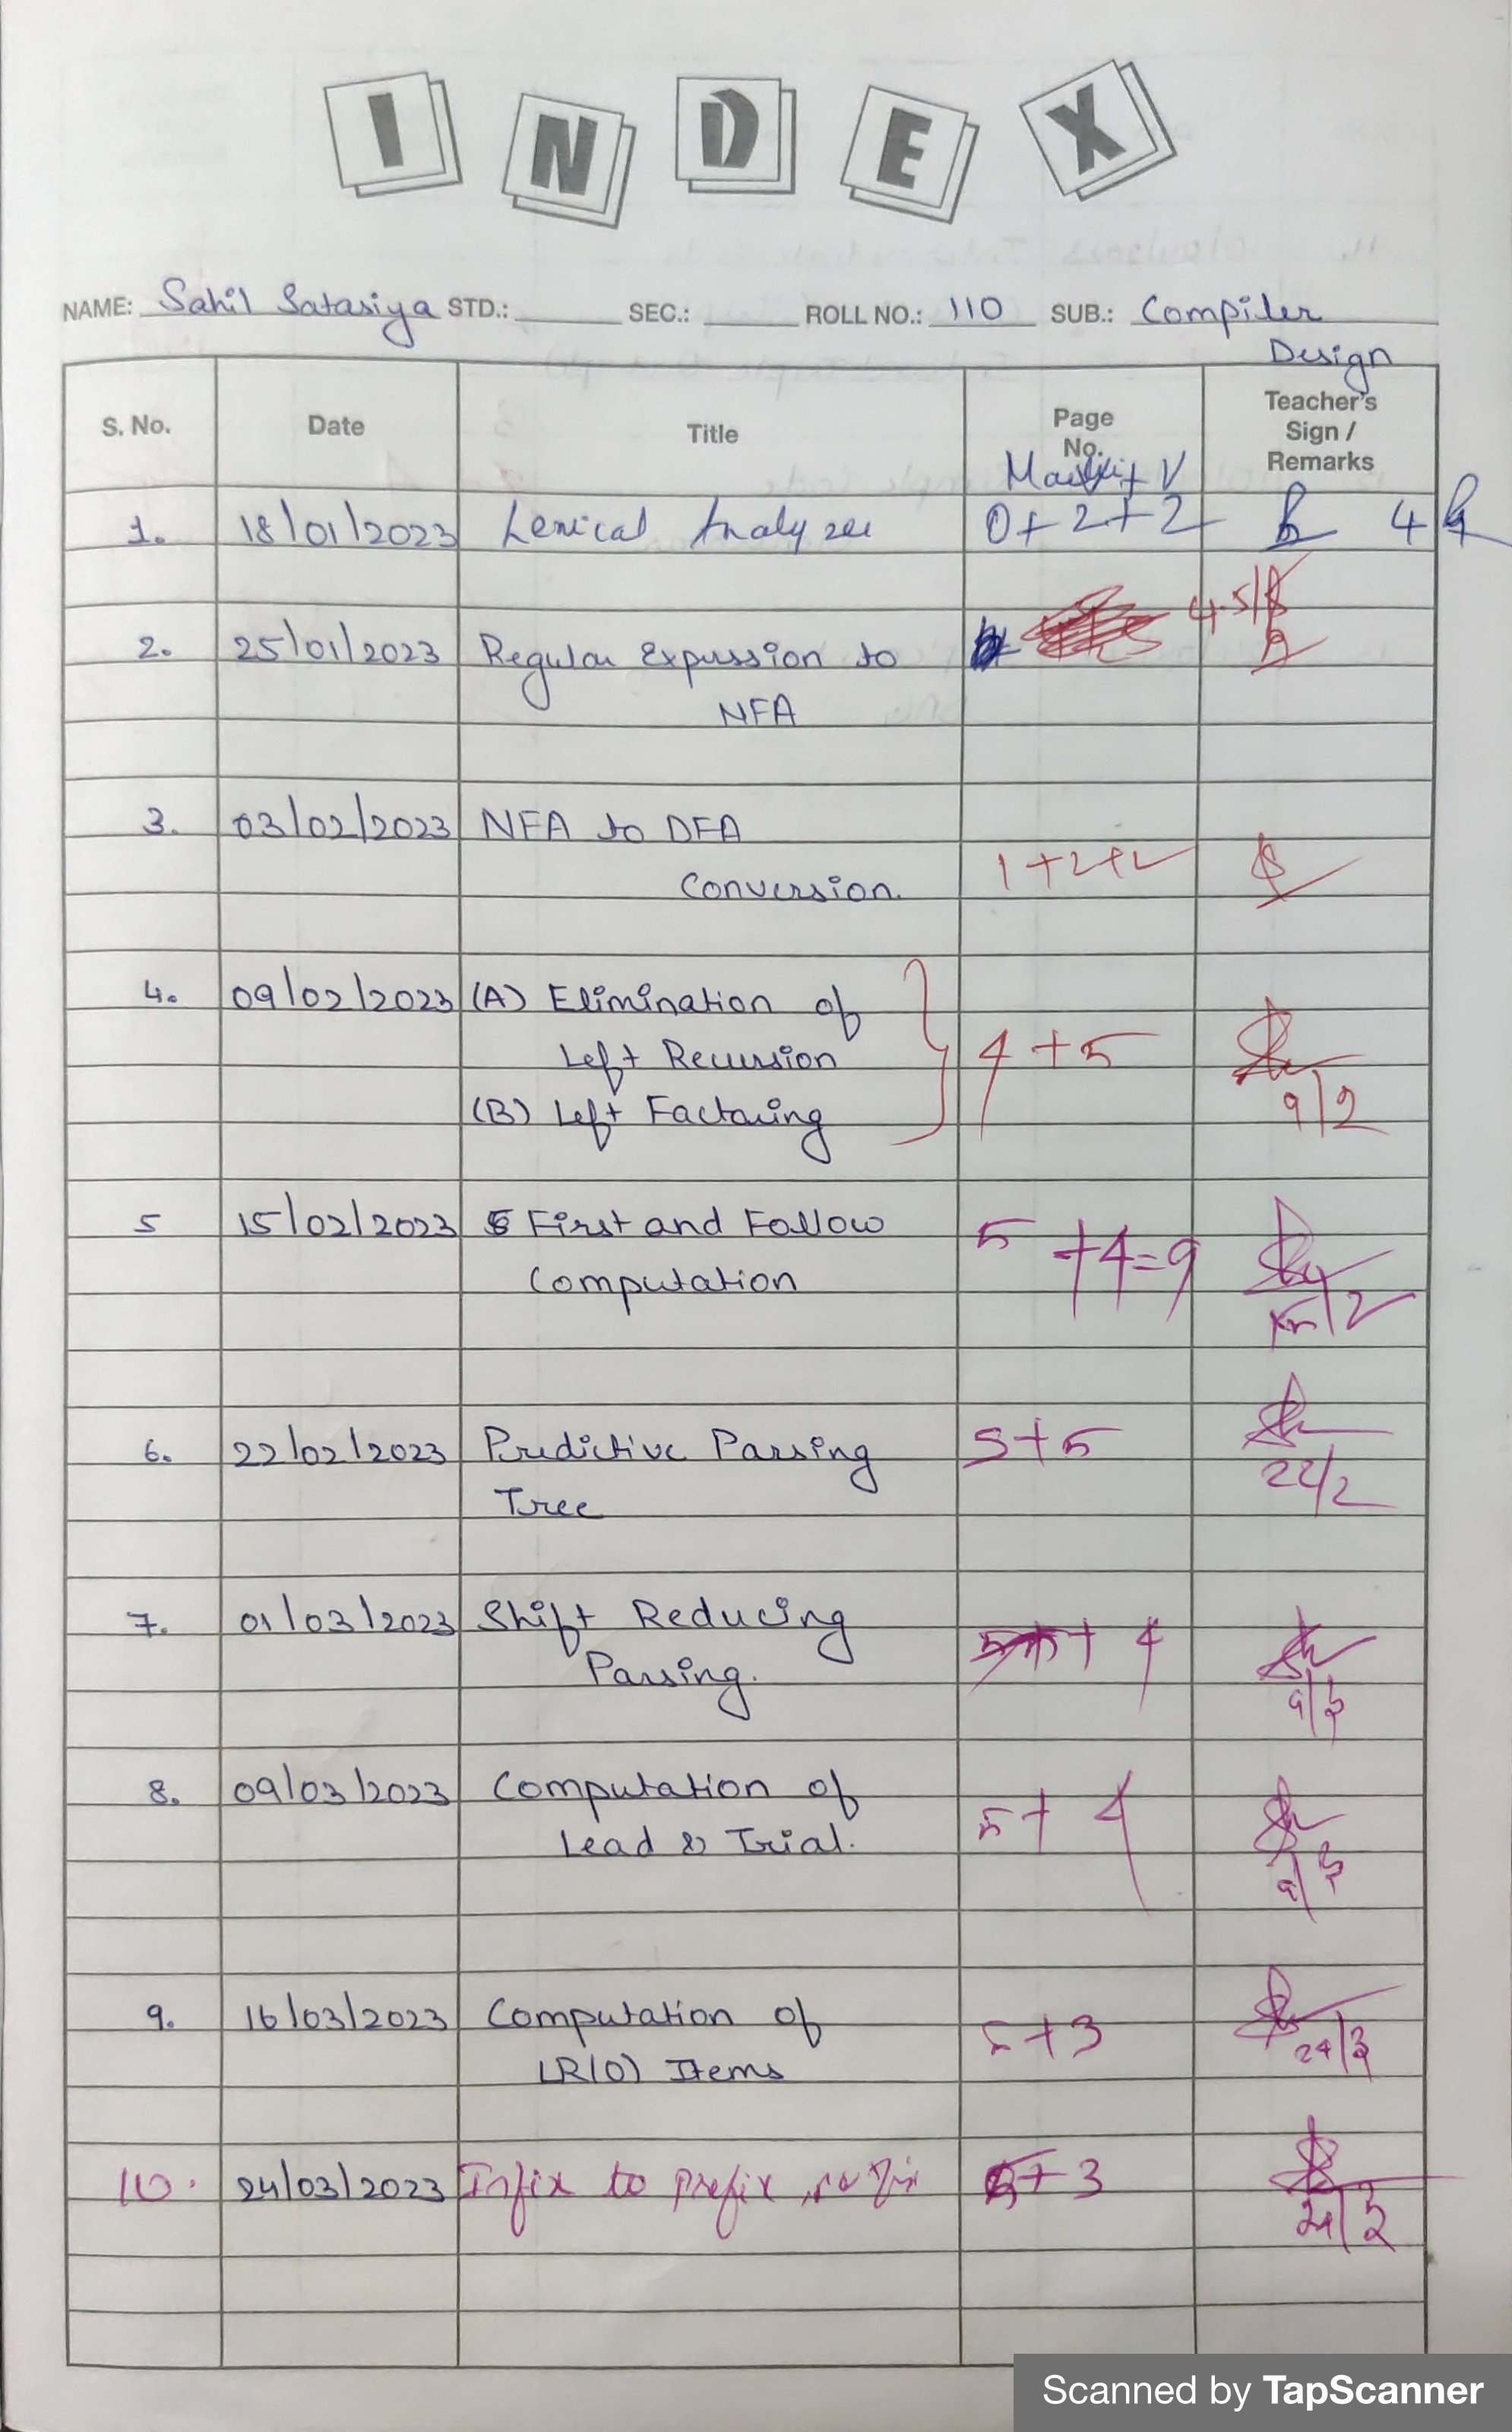 INDEX
NAME: Sahil Satasiya STD.: SEC.: ROLL NO.: 110 SUB.: Compiler
Design
S. No. Date Title Page No. Teacher's Sign / Remarks
1. 18/01/2023 Lexical Analyzer 0+2+2 4
4.5/5
2. 25/01/2023 Regular Expression to
NFA
3. 03/02/2023 NFA to DFA
Conversion. 1+2+2
4. 09/02/2023 (A) Elimination of
Left Recursion 4+5
(B) Left Factoring 9/2
5 15/02/2023 First and Follow 5+4=9
Computation
15/2
6. 22/02/2023 Predictive Parsing 5+5
Tree 22/2
7. 01/03/2023 Shift Reducing + 4
Parsing. 9/3
8. 09/03/2023 Computation of 5+4
Lead & Trial.
9/3
9. 16/03/2023 Computation of 5+3
LR(0) Items 24/3
10. 24/03/2023 Infix to prefix, +3
24/3
Scanned by TapScanner